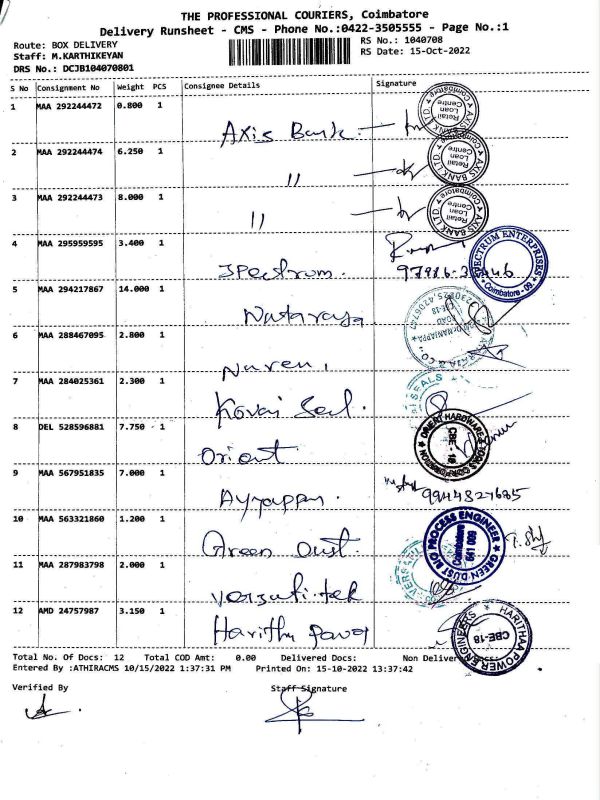 THE PROFESSIONAL COURIERS, Coimbatore
Delivery Runsheet - CMS - Phone No.:0422-3505555 - Page No.:1
Route: BOX DELIVERY
RS No.: 1040708
Staff: M.KARTHIKEYAN
RS Date: 15-Oct-2022
DRS No.: DCJB104070801
S No Consignment No Weight PCS Consignee Details Signature
1 MAA 292244472 0.800 1 Axis Bank
AXIS BANK LTD Coimbatore Retail Loan Centre
2 MAA 292244474 6.250 1 "
AXIS BANK LTD Coimbatore Retail Loan Centre
3 MAA 292244473 8.000 1 "
AXIS BANK LTD Coimbatore Retail Loan Centre
4 MAA 295959595 3.400 1 Spectrum.
SPECTRUM ENTERPRISES Coimbatore - 09
5 MAA 294217867 14.000 1 Nataraja
6 MAA 288467095 2.800 1 Naren
7 MAA 284025361 2.300 1 Kovai Seal.
SEALS
8 DEL 528596881 7.750 1 Orient
ORIENT HARDWARE & CBE - 18
9 MAA 567951835 7.000 1 Ayyappan.
9944827685
10 MAA 563321860 1.200 1 Green Dust.
GREEN DUST BIO PROCESS ENGINEER Coimbatore 641 009
11 MAA 287983798 2.000 1 Versati-tek
12 AMD 24757987 3.150 1 Haritha Power
HARITHAA POWER ENGINEERS CBE-18
Total No. Of Docs: 12 Total COD Amt: 0.00 Delivered Docs: Non Delivered Docs:
Entered By :ATHIRACMS 10/15/2022 1:37:31 PM Printed On: 15-10-2022 13:37:42
Verified By Staff Signature